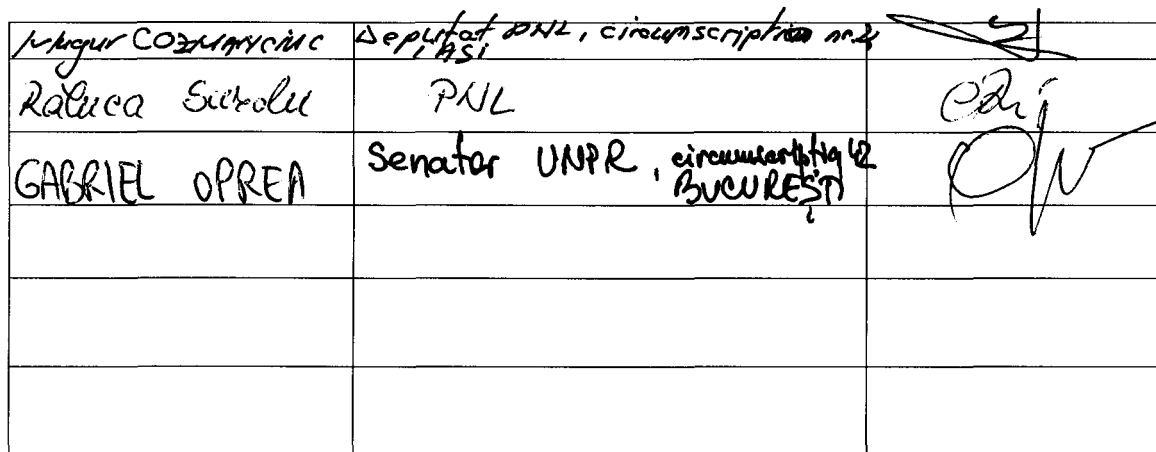 Mugur COZMANCIUC Deputat PNL, circumscripția nr. 24
IASI
Raluca Surdu PNL
GABRIEL OPREA Senator UNPR, circumscripția 42
BUCUREȘTI